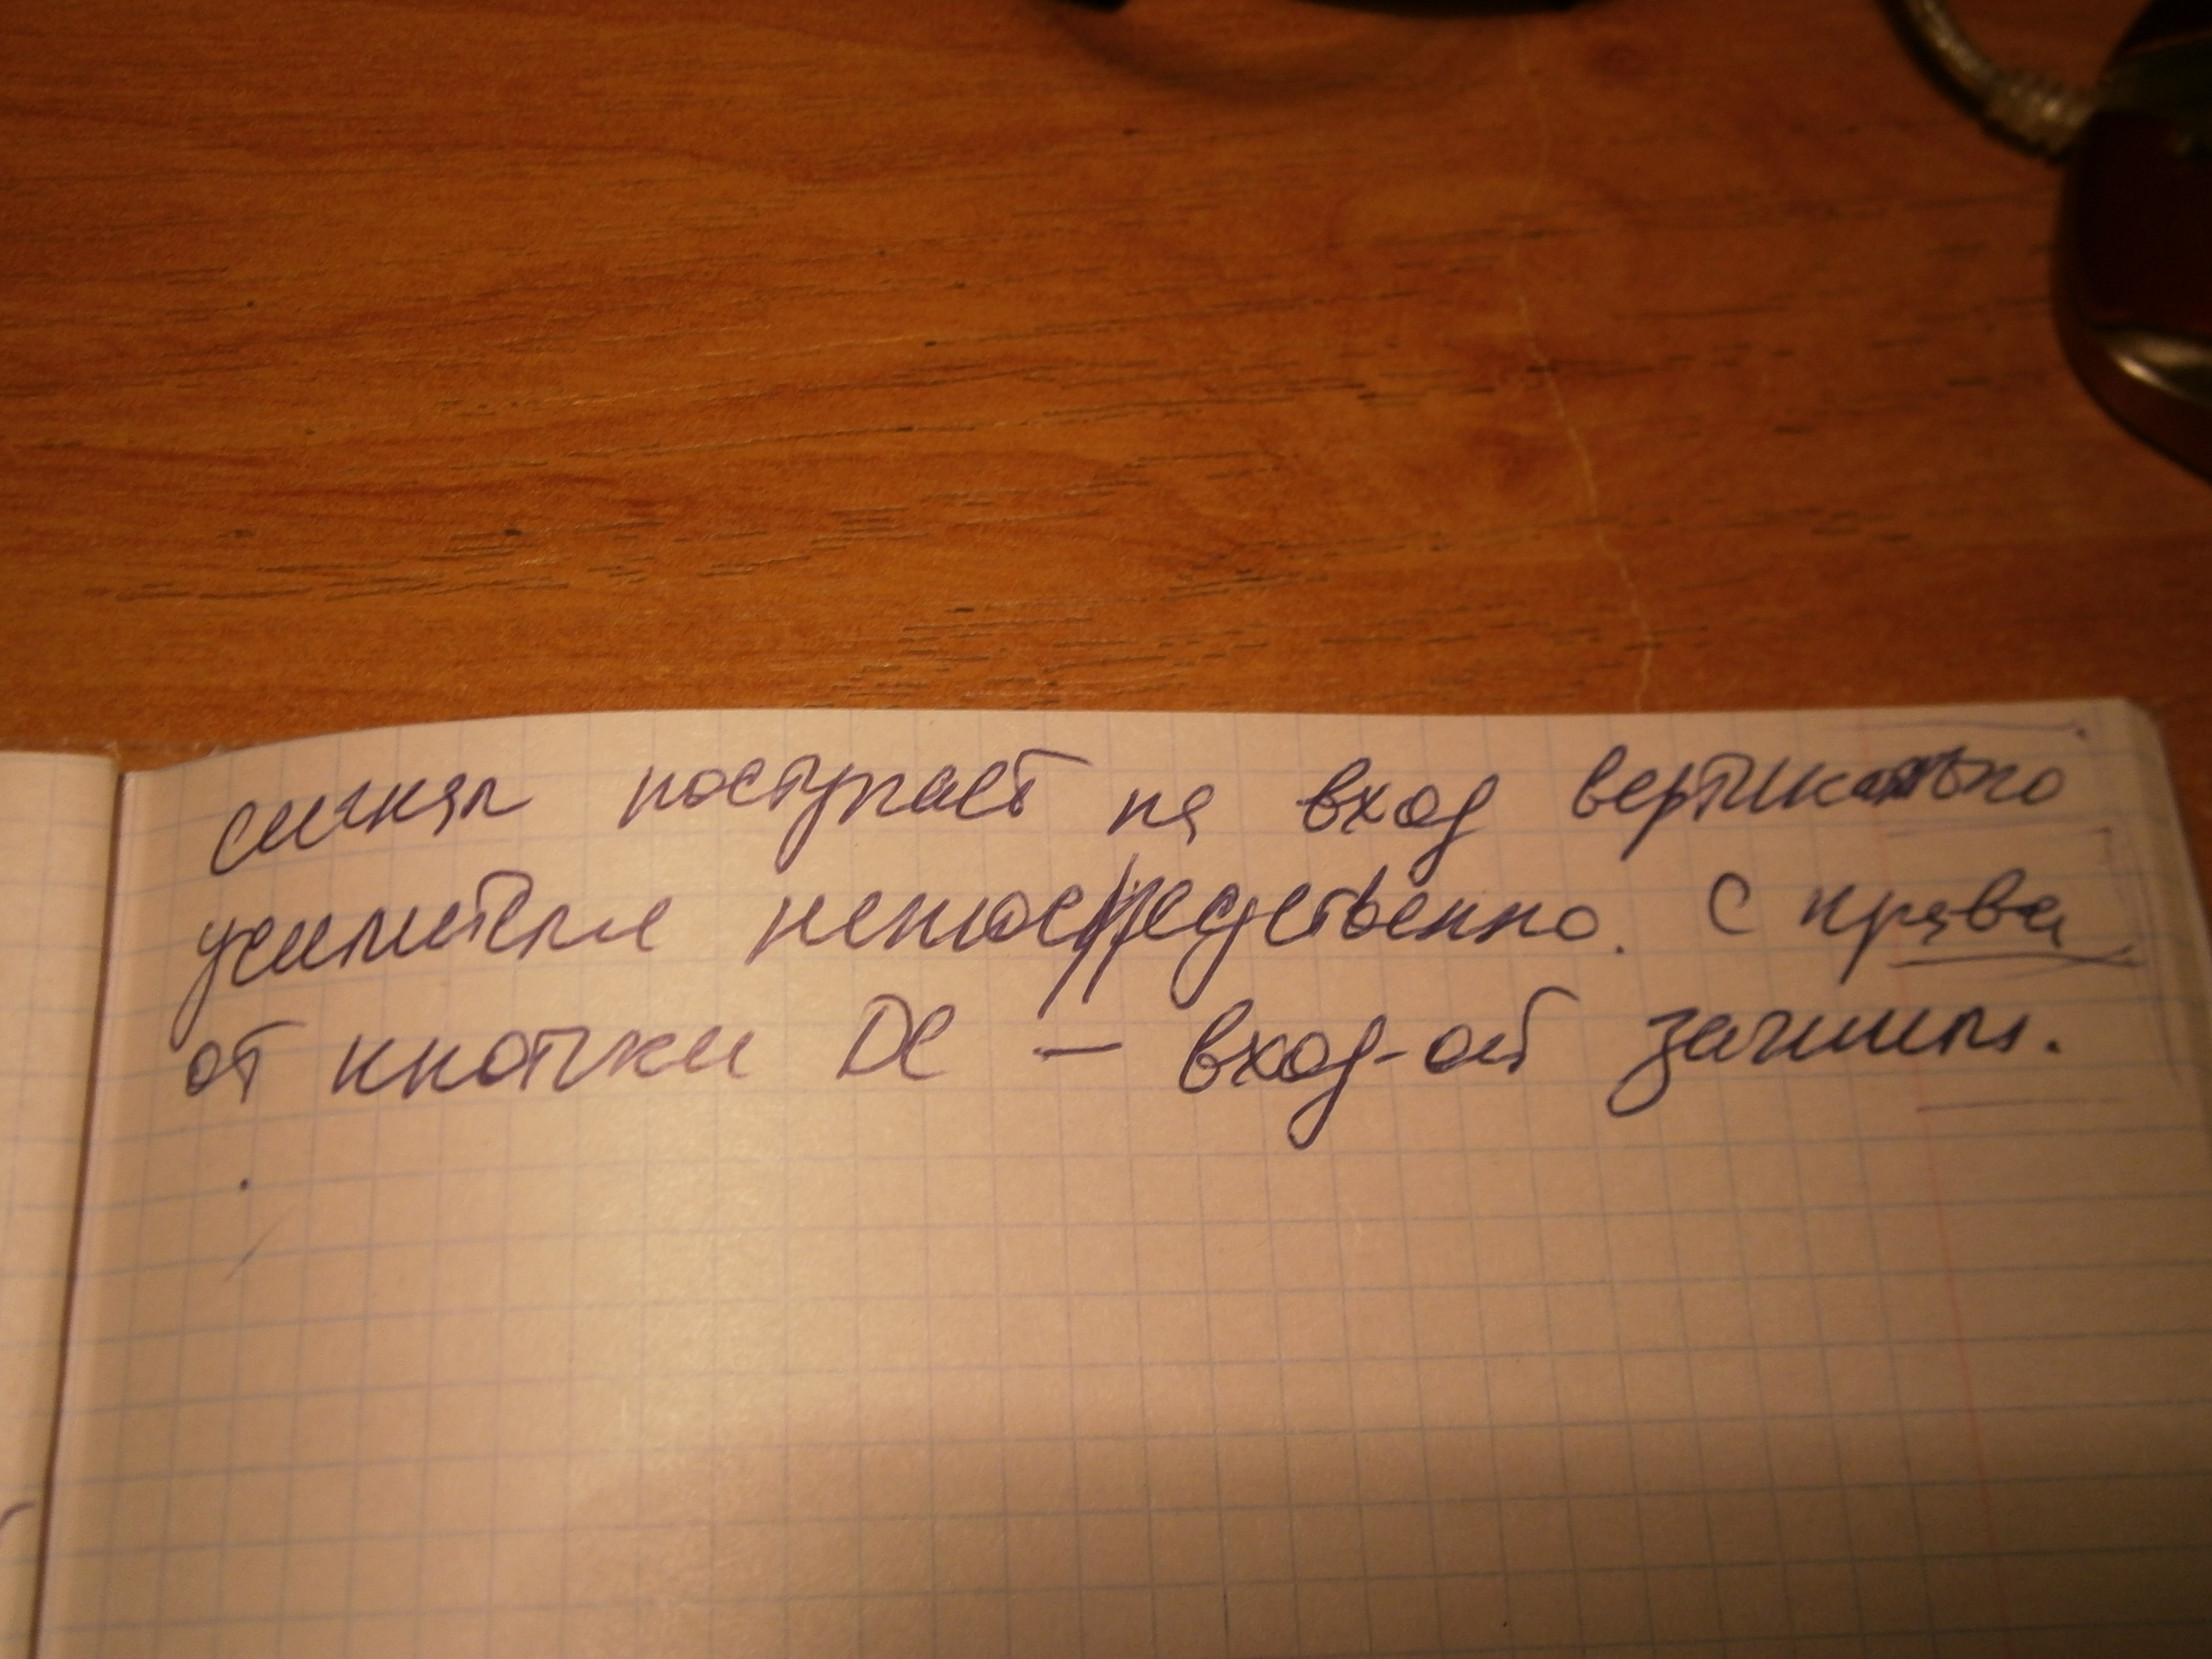 сигнал поступает на вход вертикально
усилителя непосредственно. С права
от кнопки DC —